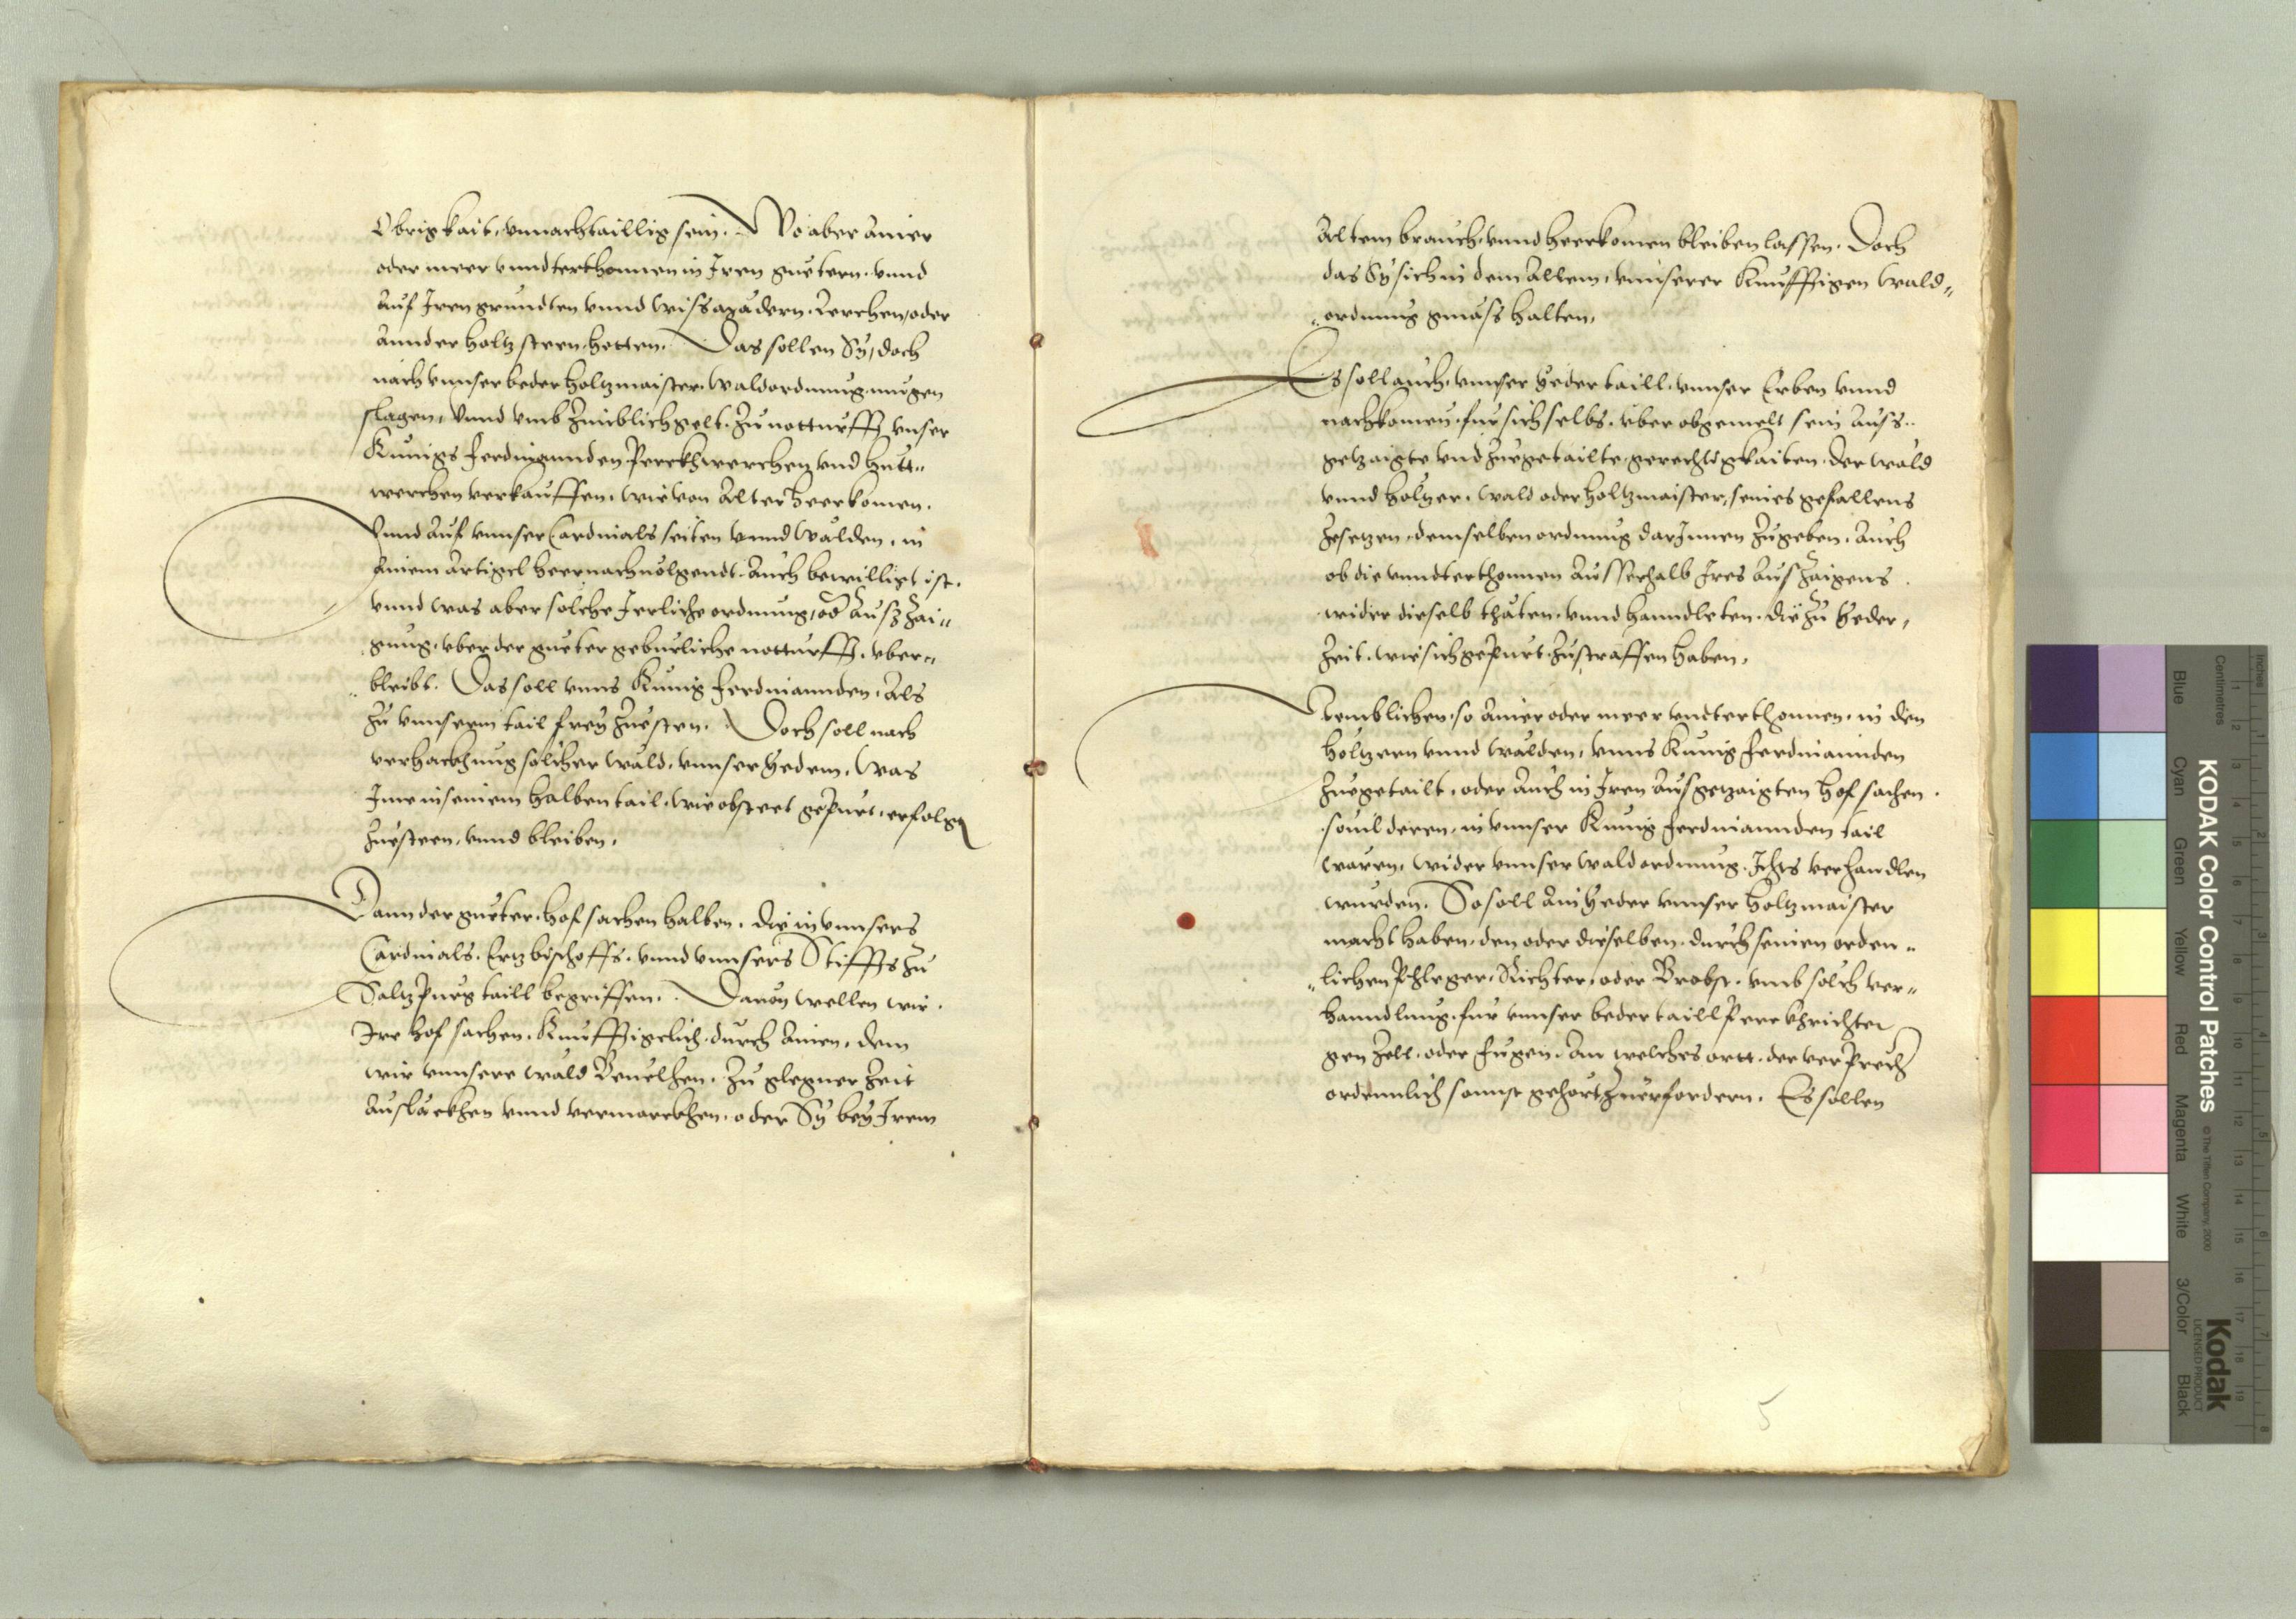 Obrigkait, vnnachtaillig sein. Wo aber ainer
oder meer vnndterthonnen in Iren guetern, vnnd
auf Iren grundten vnnd wissmadern, Lerchen, oder
annder holtz steen hetten. Das sollen Sy, doch
nach vnnser beder holtzmaister, waldordnung, mugen
slagen, Vnnd vmb zimblich gelt, zu notturfft vnser
Kunigs Ferdinannden Perckhwerchen vnd hutt„
werchen verkauffen, wie von alter heerkomen.
Vnnd auf vnnser Cardinals seiten vnnd walden, in
ainem artigel heernachuolgendt, auch bewilligt ist.
vnnd was aber solche Ierliche ordnung, od auszzai„
gung, vber der gueter geburliche notturfft, vber„
„bleibt. Das soll vnns Kunig Ferdinannden, als
zu vnnserm tail frey zuesten. Doch soll nach
verhackhung solcher wäld, vnnser yedem, was
Ime in seinem halben tail, wie obsteet gepurt, erfolgn
zuesteen, vnnd bleiben.
Dann der gueter, hof sachen halben, die in vnnsers
Cardinals, Ertzbischoffs, vnnd vnnsers Stiffts zu
Saltzpurg taill begriffen. Dauon wellen wir,
Ire hof sachen, Kunfftigclich, durch ainen, dem
wir vnnsere wäld Beuelhen, zu glegner zeit
auslackhen vnnd vermarckhen, oder Sy bey Irem
altem brauch, vnnd heerkomen bleiben lassen. Doch
das Sy sich in dem allem, vnnserer Kunfftigen Wald„
„ordnung gmäss halten.
Es soll auch, vnnser yeder taill, vnnser Erben vnnd
nachkomen, fur sich selbs, vber obgemelt sein auss„
getzaigte vnd zuegetailte gerechtigkaiten, der wäld
vnnd holtzer, wald oder holtzmaister, seines gefallens
zesetzen, demselben ordnung darInnen zugeben, auch
ob die vnndterthonnen ausserhalb Ires auszaigens
wider dieselb thäten, vnnd hanndleten, die zu yeder,
zeit, wie sich gepurt, zustraffen haben.
Nemblichen, so ainer oder meer vndterthonnen, in den
holtzern vnnd wälden, vnns Kunig Ferdinannden
zuegetailt, oder auch in Iren ausgetzaigten hof sachen,
souil deren, in vnnser Kunig Ferdinannden tail
waren, wider vnnser waldordnung, Ichts verhandlen
wurden. So soll ain yeder vnnser holtzmaister
macht haben, den oder dieselben, durch seinen orden„
„lichen Phleger, Richter, oder Brobst, vmb solch ver„
hanndlung, fur vnnser beder taill Perckhrichter
gen Zell, oder Fugen, an welches ortt, der verprech
ordennlich sonnst gehört, zuerfordern. Es sollen
5
KODAK Color Control Patches
© The Tiffen Company, 2000
Kodak
LICENSED PRODUCT
Centimetres
Inches
Blue
Cyan
Green
Yellow
Red
Magenta
White
3/Color
Black